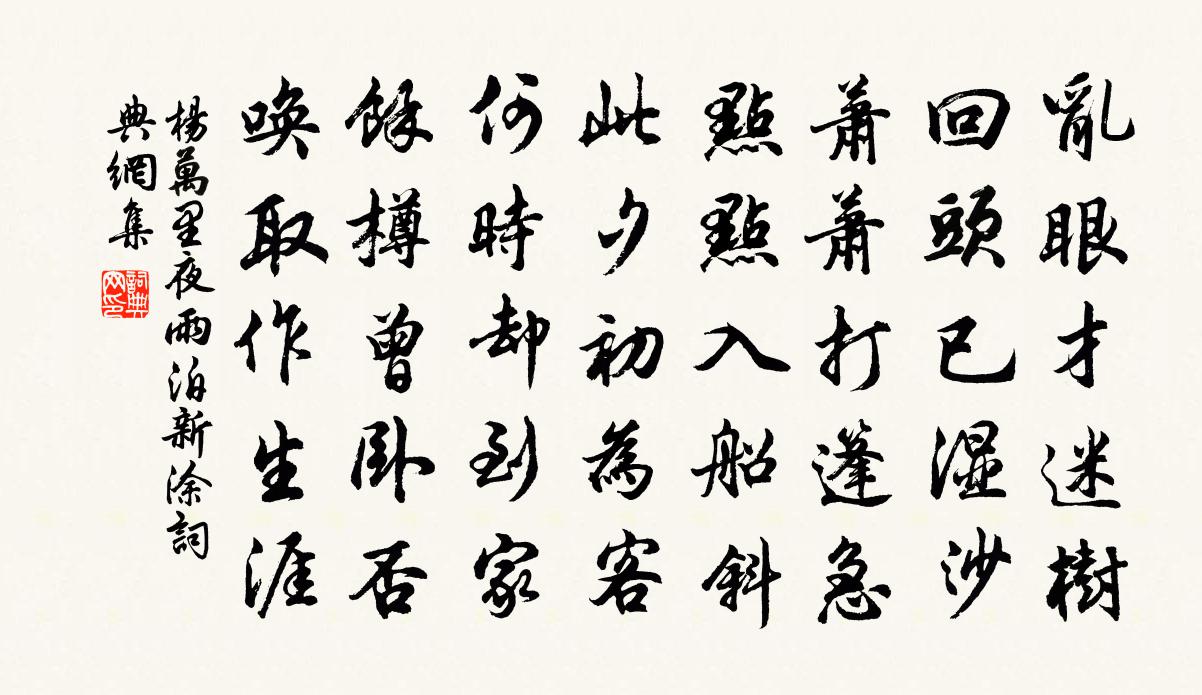 亂眼才迷樹
回頭已濕沙
蕭蕭打篷急
點點入船斜
此夕初為客
何時却到家
餘樽曾卧否
喚取作生涯
楊萬里夜雨泊新淦詞
典網集
詞典
网印